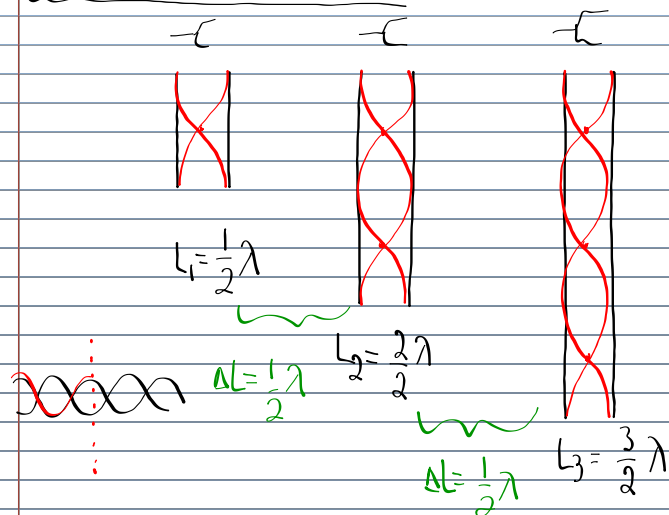 L₁ = 1/2 λ
ΔL = 1/2 λ
L₂ = 2λ/2
ΔL = 1/2 λ
L₃ = 3/2 λ